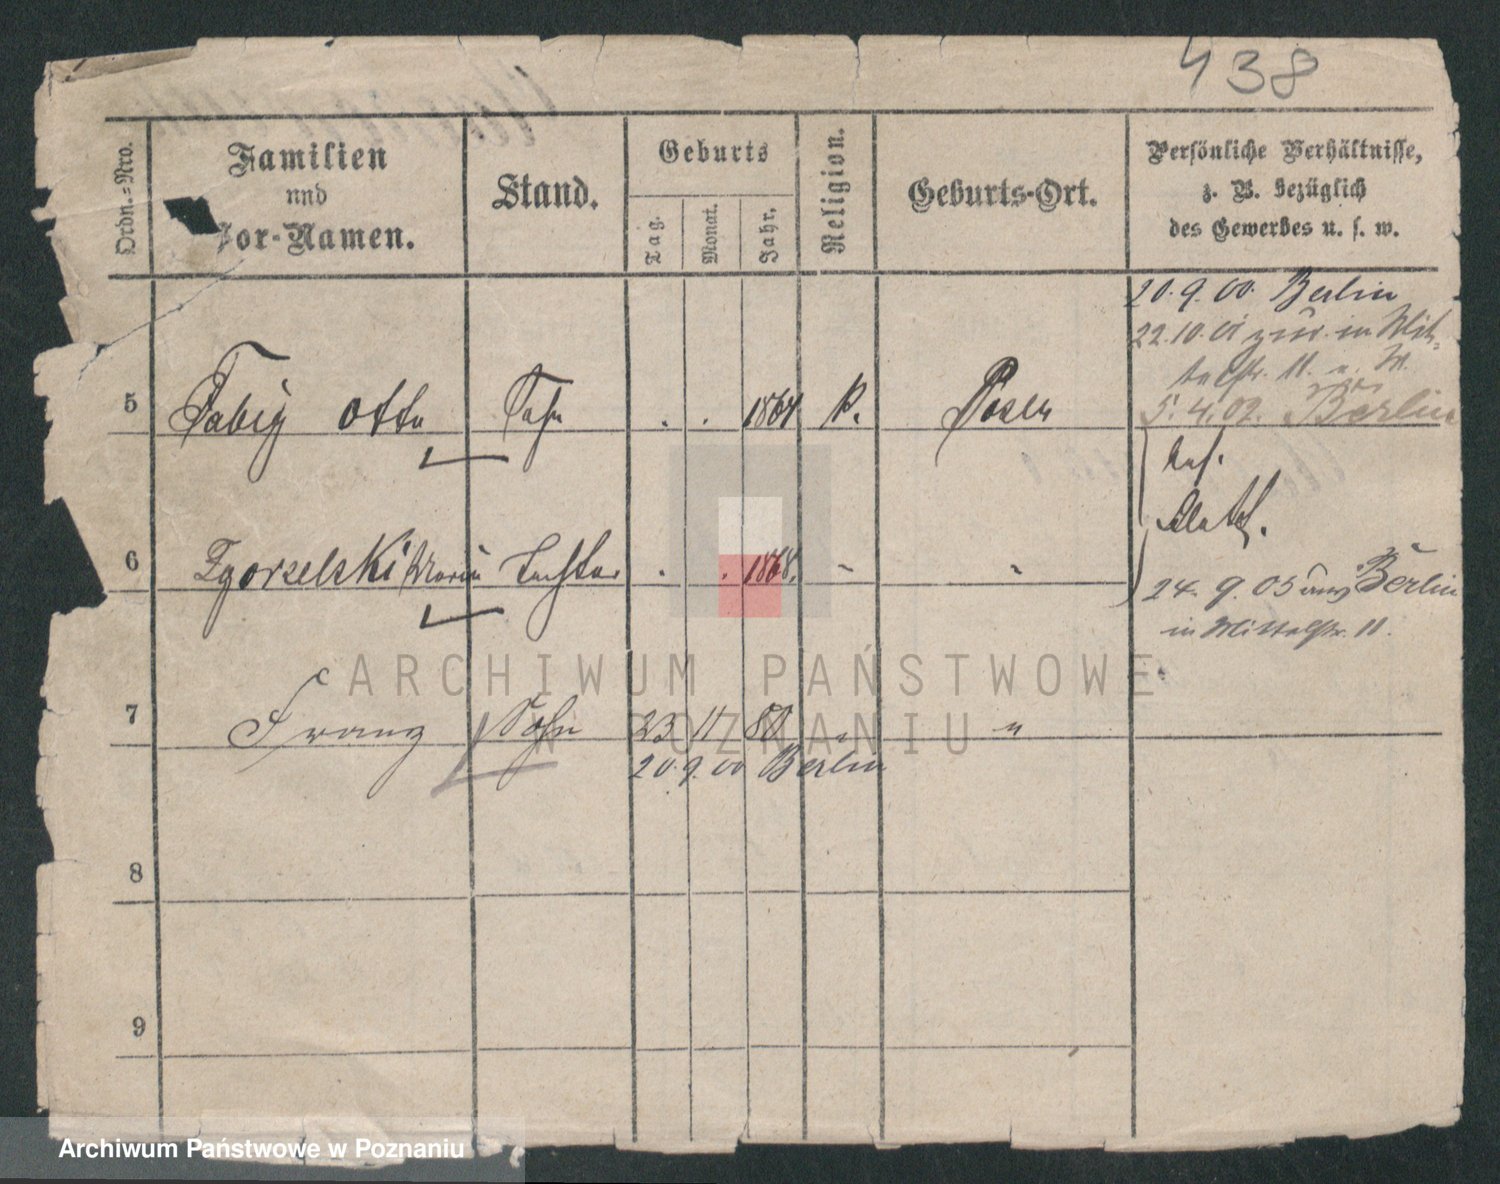 438
Ordn.=Nro.
Familien
und
Vor-Namen.
Stand.
Geburts
Tag.
Monat.
Jahr.
Religion.
Geburts-Ort.
Persönliche Verhältnisse,
z. B. bezüglich
des Gewerbes u. s. w.
20.9.00. Berlin
22.10.01 zur. in Mit-
telstr. 11.
5 Fabig Otto Sohn . . 1864 k. Posen
5.4.02. Berlin
6 Zgorzelski Maria Tochter . . 1868. - "
24. 9. 05 aus Berlin
in Mittelstr. 11.
7 Franz Sohn 23 11 80 " "
20.9.00 Berlin
8
9
ARCHIWUM PAŃSTWOWE
W POZNANIU
Archiwum Państwowe w Poznaniu